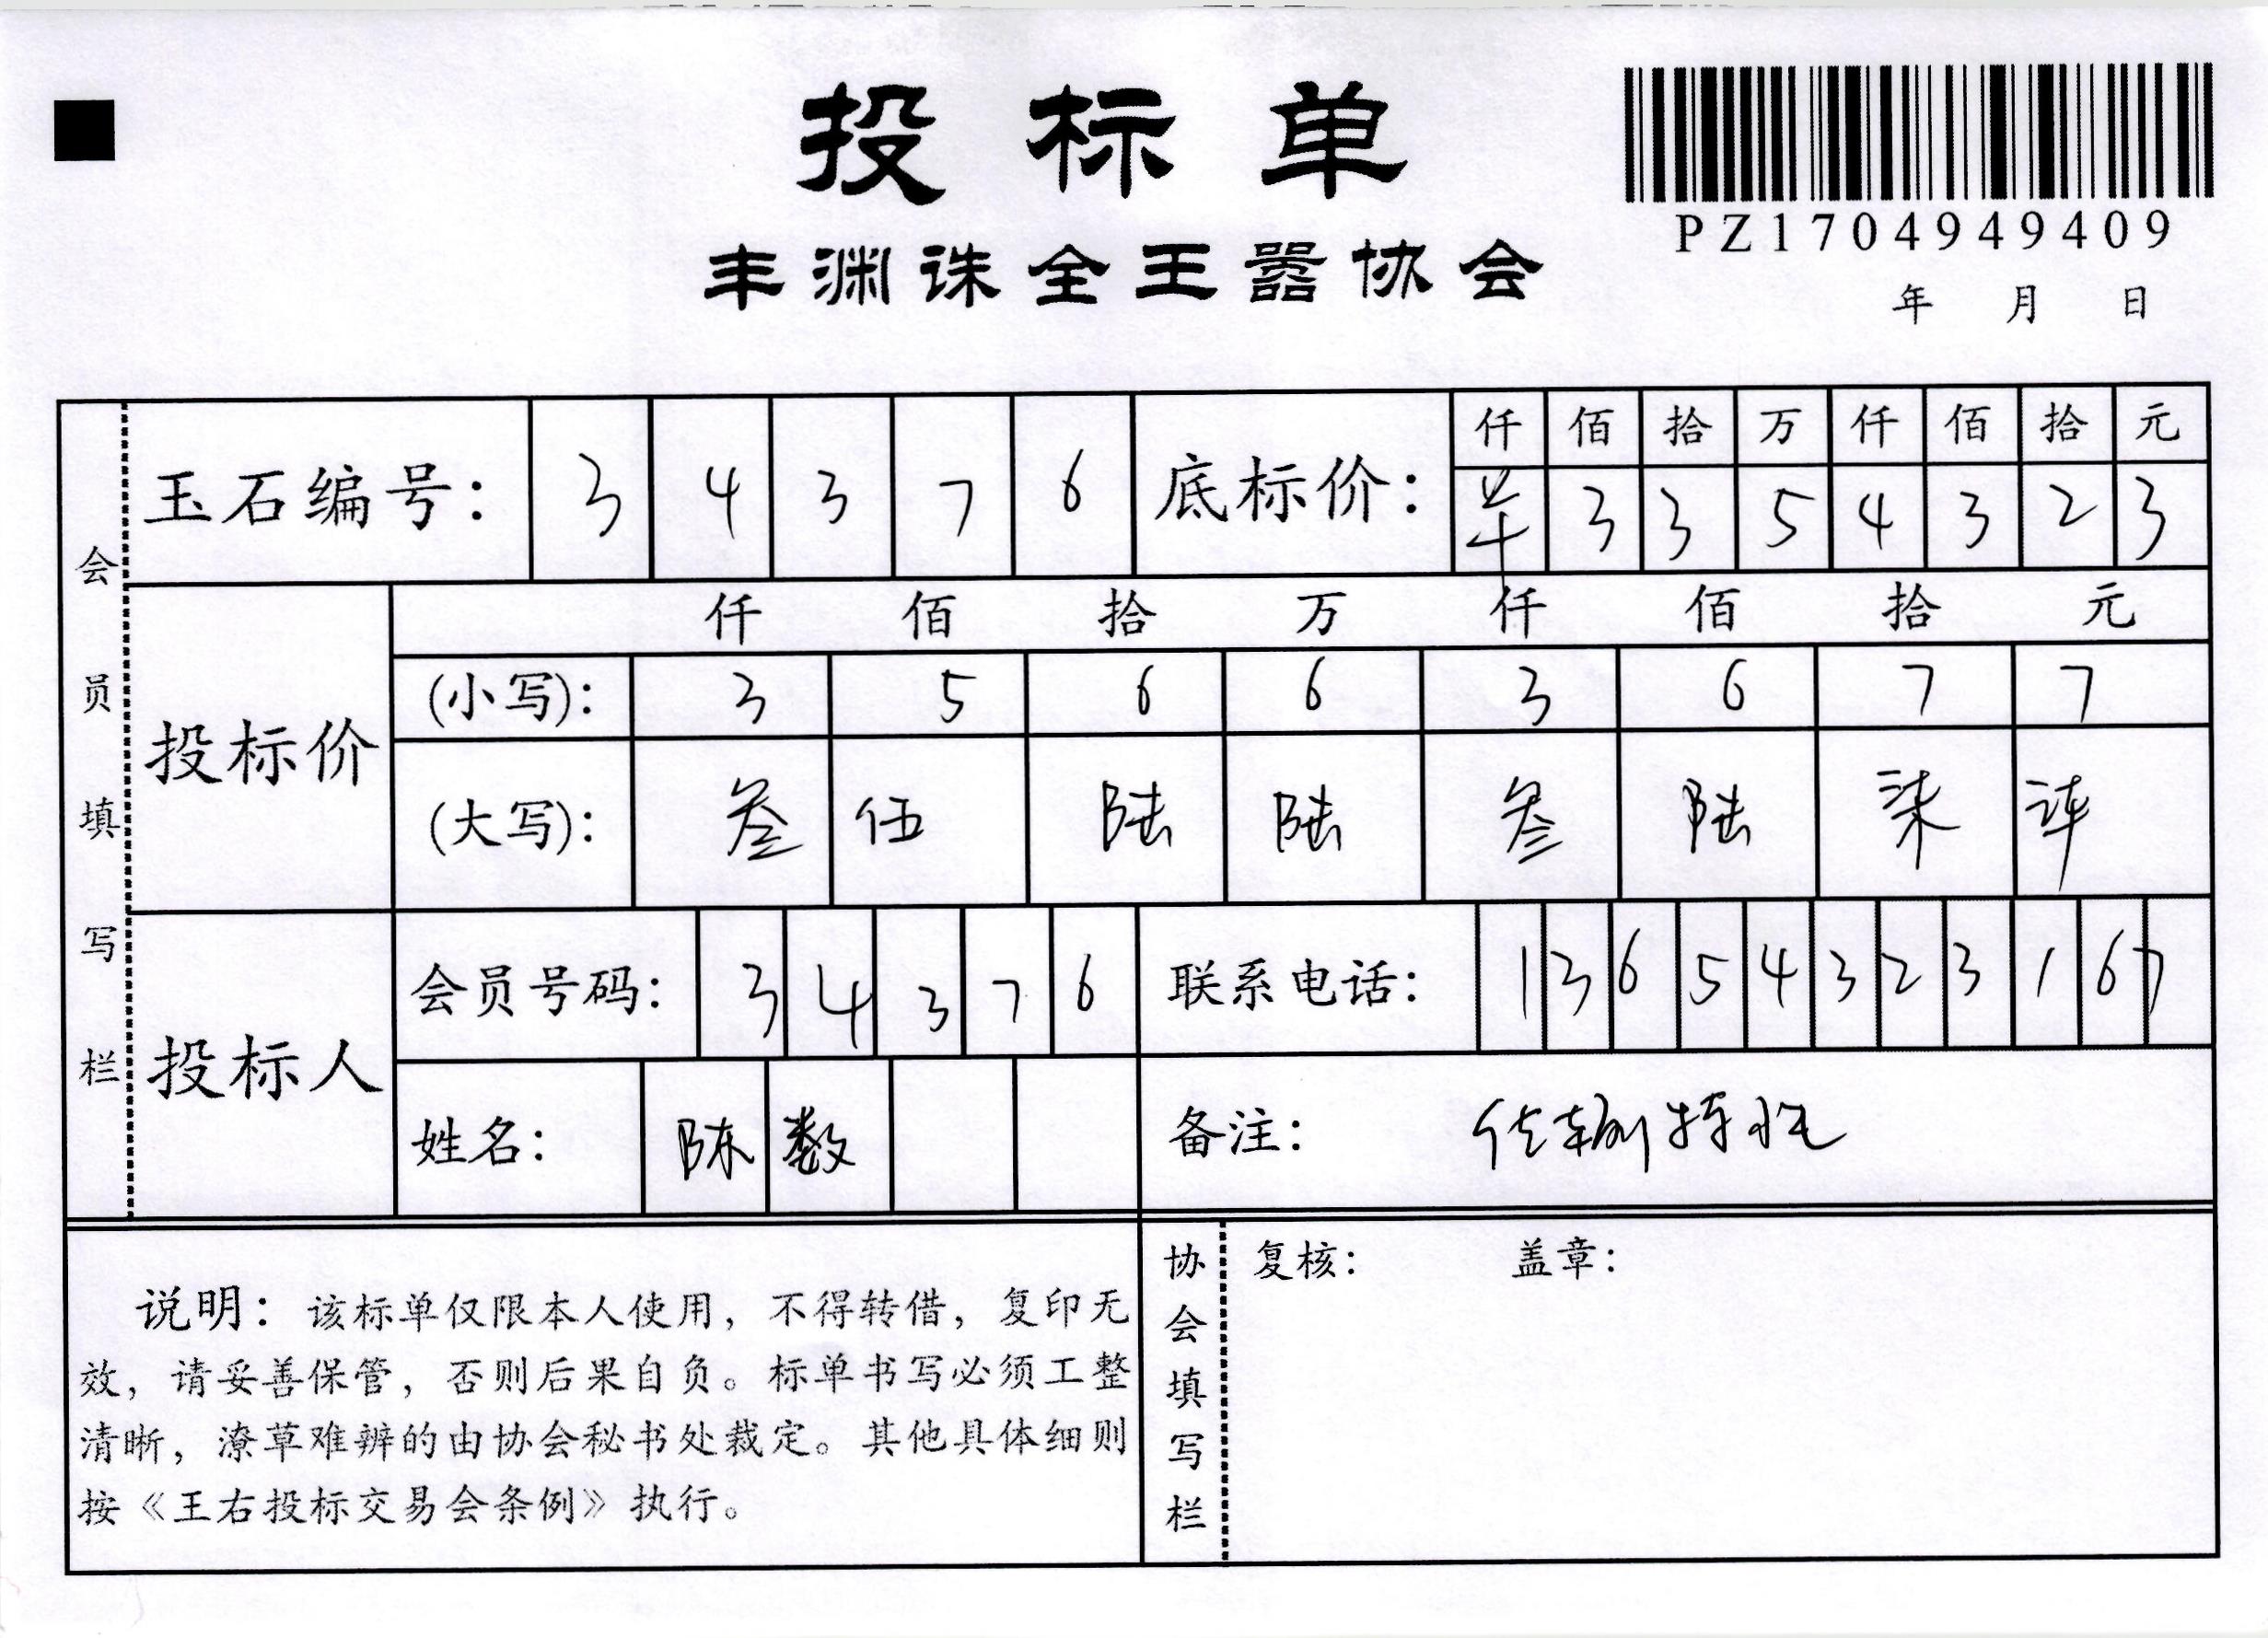 投标单
PZ1704949409
丰渊诛全王嚣协会
年 月 日
会员填写栏
玉石编号: 3 4 3 7 6
底标价: 仟 佰 拾 万 仟 佰 拾 元
3 3 5 4 3 2 3
投标价
仟 佰 拾 万 仟 佰 拾 元
(小写): 3 5 6 6 3 6 7 7
(大写): 叁 伍 陆 陆 叁 陆 柒
投标人
会员号码: 3 4 3 7 6
联系电话: 1 3 6 5 4 3 2 3 1 6 7
姓名: 陈 数
备注: 传输特性
说明: 该标单仅限本人使用, 不得转借, 复印无
效, 请妥善保管, 否则后果自负。标单书写必须工整
清晰, 潦草难辨的由协会秘书处裁定。其他具体细则
按《王右投标交易会条例》执行。
协会填写栏
复核: 盖章: